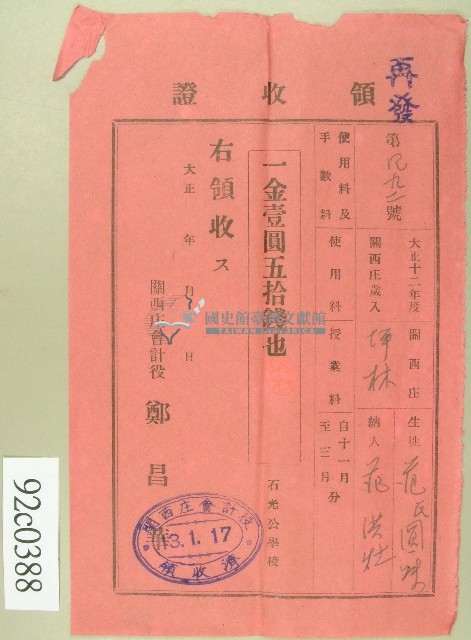 領收證
再發
第 九二號
大正十二年度 關西庄 生徒 范氏圓妹
關西庄歲入 坪林 納人 范洪灶
使用料及 使用料 授業料 自十一月 至三月 分
手數料
石光公學校
一金壹圓五拾錢也
右領收ス
大正 年 月 日
關西庄會計役 鄭昌華
關西庄會計役
13.1.17
領收濟
國史館臺灣文獻館
TAIWAN HISTORICA
92c0388